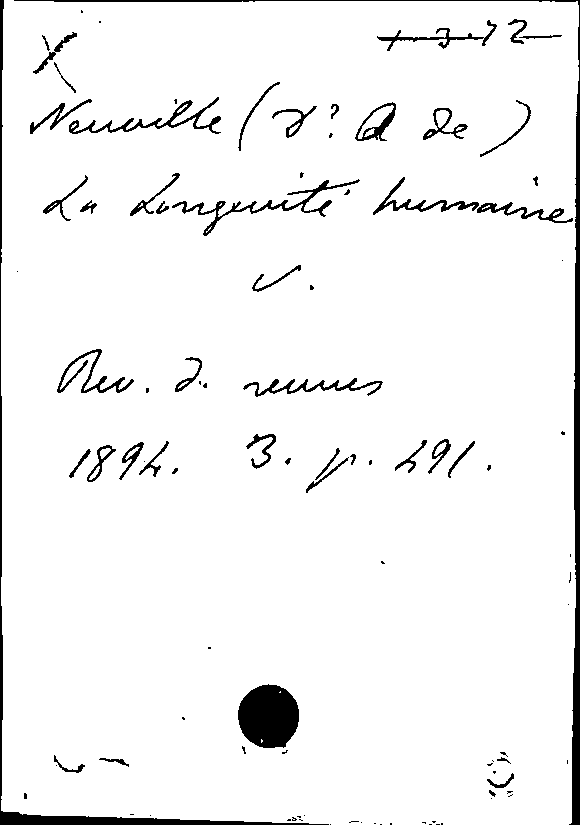 X
1-3.42
Neuville (Dr. A de)
La Longevité humaine
v.
Rev. d. revues
1894. 3. p. 491.